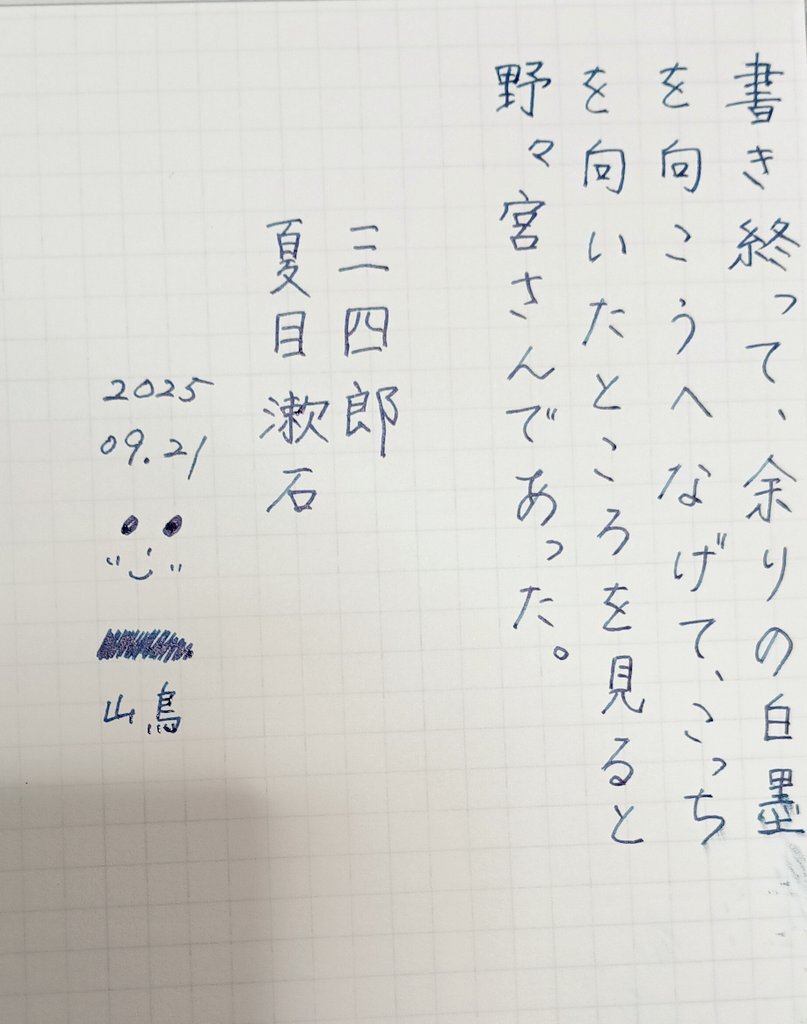 書き終って、余りの白墨
を向こうへなげて、こっち
を向いたところを見ると
野々宮さんであった。
三四郎
夏目漱石
2025
09.21
山鳥